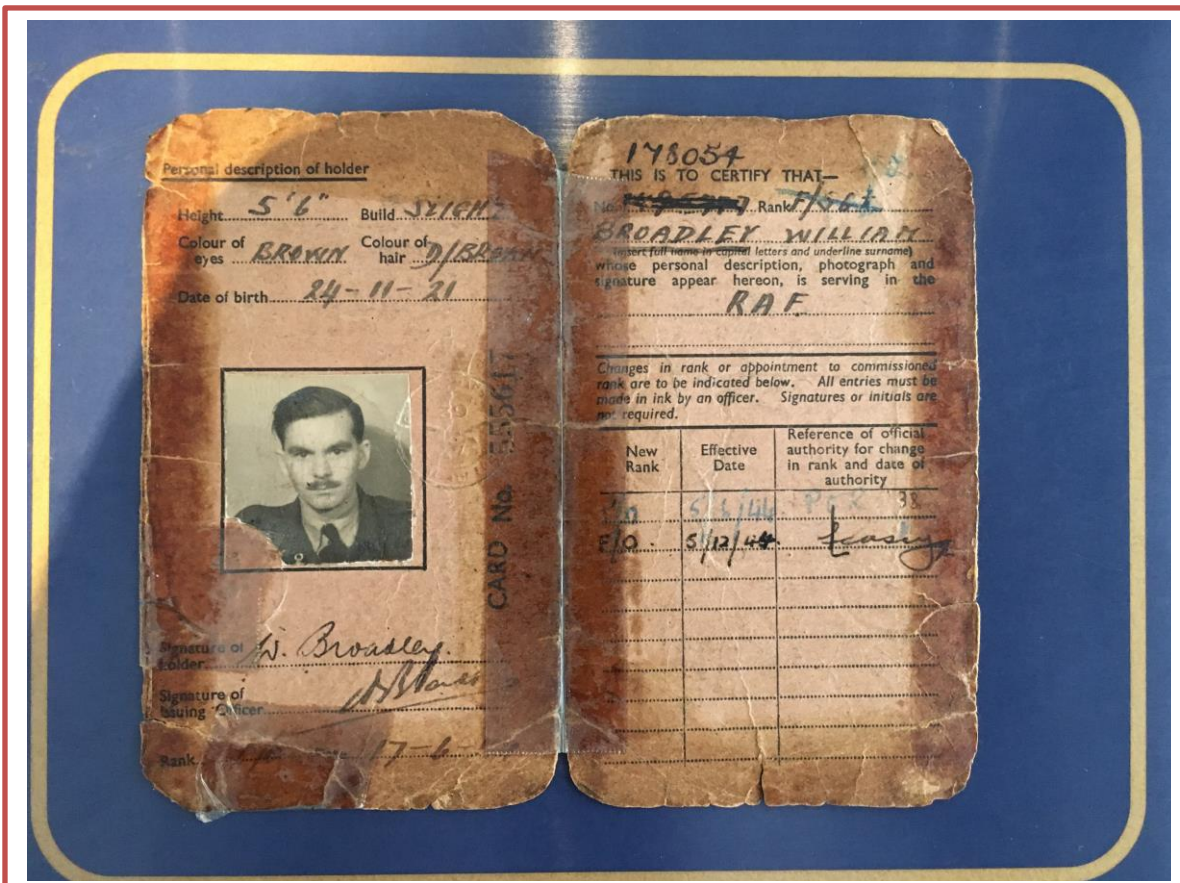 Personal description of holder
Height 5'6" Build SLIGHT
Colour of eyes BROWN Colour of hair D/BROWN
Date of birth 24-11-21
CARD No. 555617
Signature of holder W. Broadley.
Signature of Issuing Officer
Rank Date 17-6
178054
THIS IS TO CERTIFY THAT—
No. Rank
BROADLEY WILLIAM
(insert full name in capital letters and underline surname)
whose personal description, photograph and
signature appear hereon, is serving in the
RAF.
Changes in rank or appointment to commissioned
rank are to be indicated below. All entries must be
made in ink by an officer. Signatures or initials are
not required.
New Rank Effective Date Reference of official authority for change in rank and date of authority
38
F/O. 5/12/44